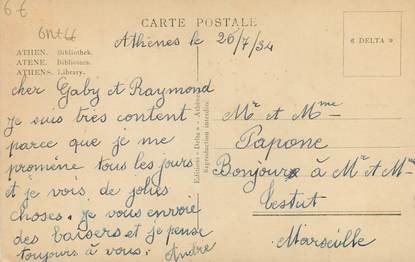 6 €
CARTE POSTALE
ATHEN. Bibliothek.
ATENE. Biblioteca.
ATHENS. Library.
Athènes le 26/7/34
« DELTA »
cher Gaby et Raymond
je suis très content
parce que je me
promène tous les jours
et je vois de jolies
choses. je vous envoie
des baisers et je pense
toujours à vous.
André
Editions « Delta » - Athènes
Reproduction interdite
Mr et Mme
Papone
Bonjour à Mr et Mme
Lestut
Marseille